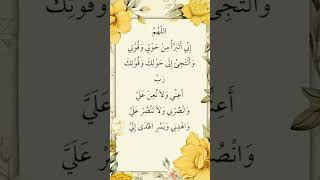 اللَّهُمَّ
إِنِّي أَتَبَرَّأُ مِنْ حَوْلِي وَقُوَّتِي
وَأَلْتَجِئُ إِلَى حَوْلِكَ وَقُوَّتِكَ
رَبِّ
أَعِنِّي وَلَا تُعِنْ عَلَيَّ
وَانْصُرْنِي وَلَا تَنْصُرْ عَلَيَّ
وَاهْدِنِي وَيَسِّرِ الْهُدَى إِلَيَّ